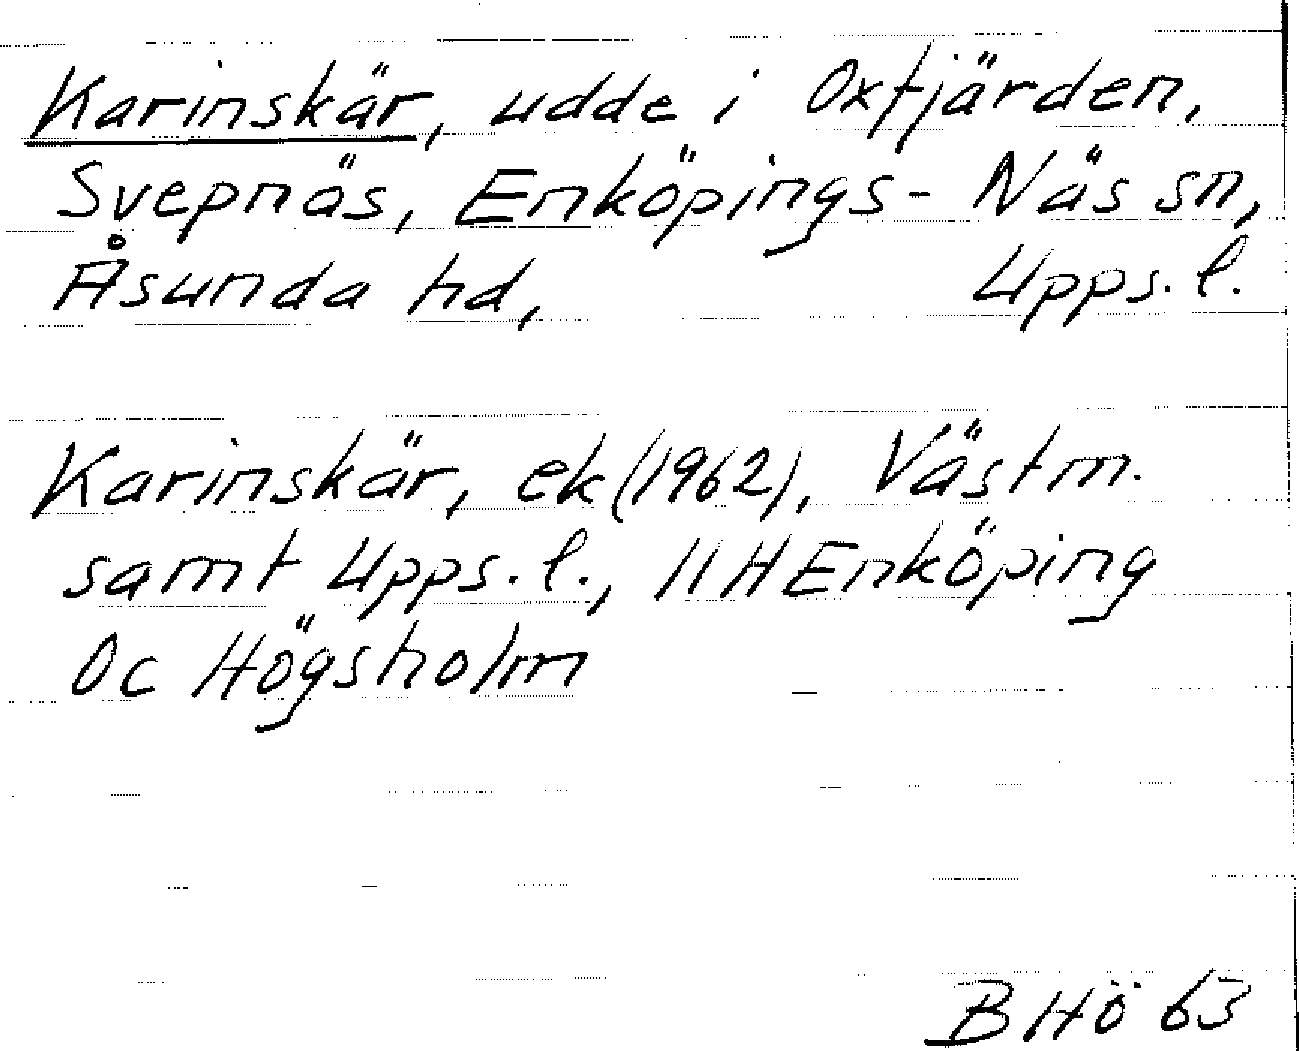 Karinskär, udde i Oxfjärden,
Svepnäs, Enköpings-Näs sn,
Åsunda hd, Upps. l.
Karinskär, ek (1962), Västm.
samt Upps. l., 11H Enköping
Oc Högsholm
B Hö 63